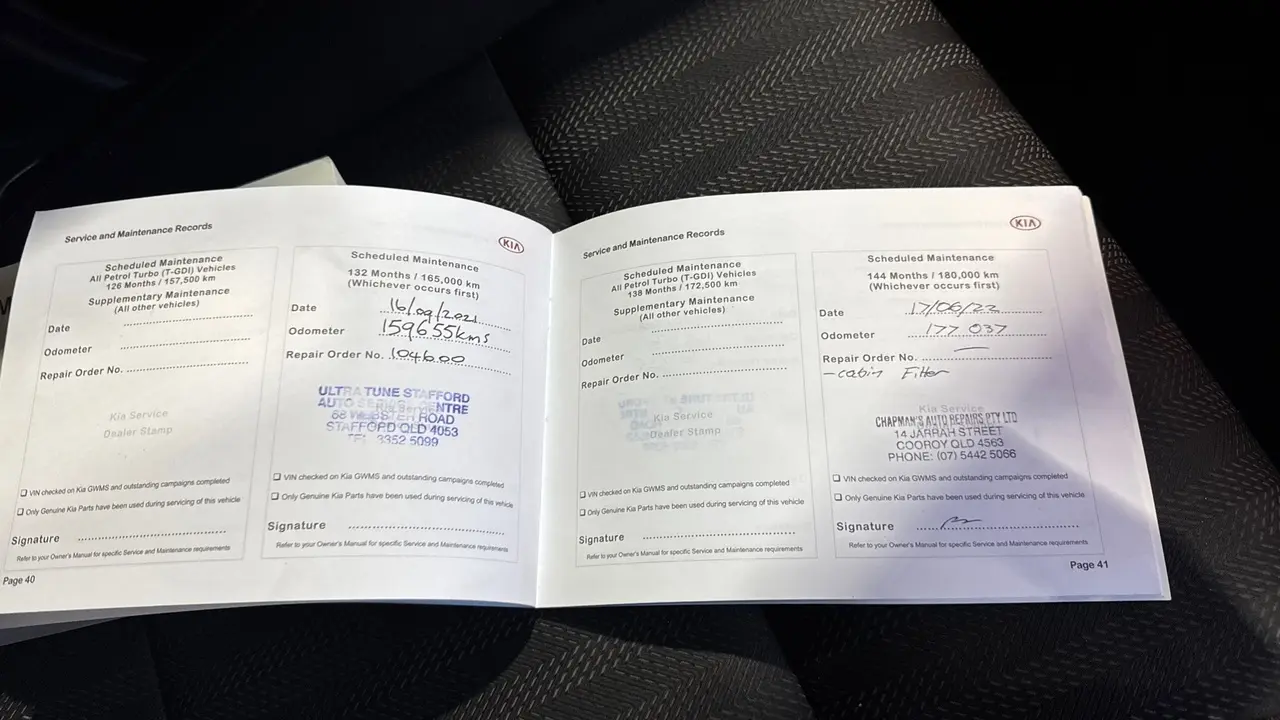 Service and Maintenance Records
KIA
Scheduled Maintenance
All Petrol Turbo (T-GDI) Vehicles
126 Months / 157,500 km
Supplementary Maintenance
(All other vehicles)
Date
Odometer
Repair Order No.
Kia Service
Dealer Stamp
VIN checked on Kia GWMS and outstanding campaigns completed
Only Genuine Kia Parts have been used during servicing of this vehicle
Signature
Refer to your Owner's Manual for specific Service and Maintenance requirements
Page 40
Scheduled Maintenance
132 Months / 165,000 km
(Whichever occurs first)
Date 16/09/2021
Odometer 159655kms
Repair Order No. 104600
ULTRA TUNE STAFFORD
AUTO SERVICE CENTRE
68 WEBSTER ROAD
STAFFORD QLD 4053
TEL 3352 5099
VIN checked on Kia GWMS and outstanding campaigns completed
Only Genuine Kia Parts have been used during servicing of this vehicle
Signature
Refer to your Owner's Manual for specific Service and Maintenance requirements
Service and Maintenance Records
KIA
Scheduled Maintenance
All Petrol Turbo (T-GDI) Vehicles
138 Months / 172,500 km
Supplementary Maintenance
(All other vehicles)
Date
Odometer
Repair Order No.
Kia Service
Dealer Stamp
VIN checked on Kia GWMS and outstanding campaigns completed
Only Genuine Kia Parts have been used during servicing of this vehicle
Signature
Refer to your Owner's Manual for specific Service and Maintenance requirements
Scheduled Maintenance
144 Months / 180,000 km
(Whichever occurs first)
Date 17/06/22
Odometer 177 037
Repair Order No.
- cabin Filter
Kia Service
CHAPMAN'S AUTO REPAIRS PTY LTD
14 JARRAH STREET
COOROY QLD 4563
PHONE: (07) 5442 5066
VIN checked on Kia GWMS and outstanding campaigns completed
Only Genuine Kia Parts have been used during servicing of this vehicle
Signature
Refer to your Owner's Manual for specific Service and Maintenance requirements
Page 41